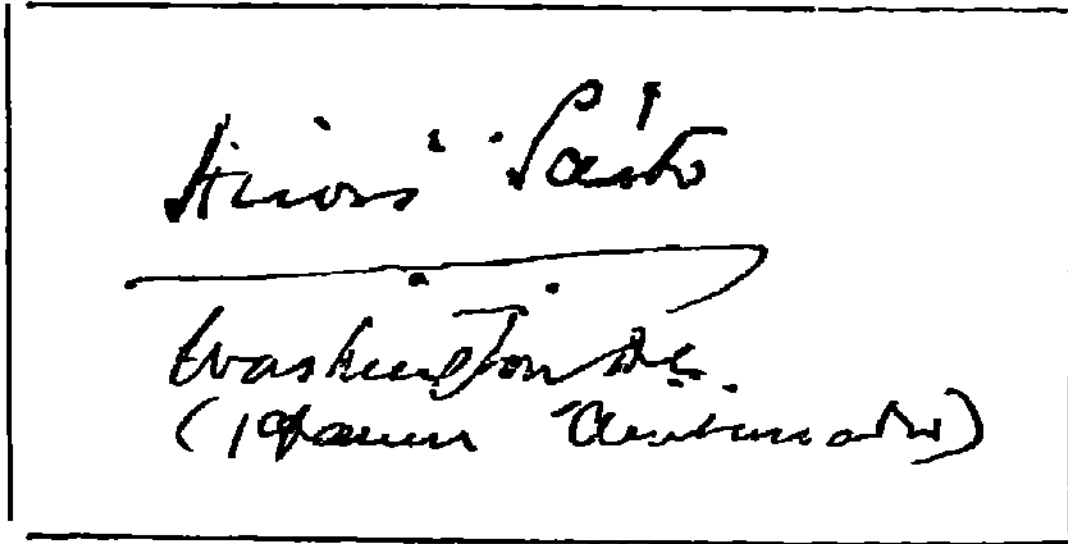 Hirosi Saito
Washington D.C.
(Japanese Ambassador)